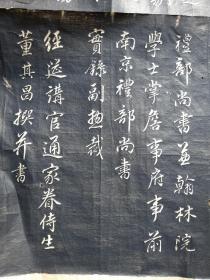 禮部尚書兼翰林院
學士掌詹事府事前
南京禮部尚書
實錄副總裁
經筵講官通家眷侍生
董其昌撰并書